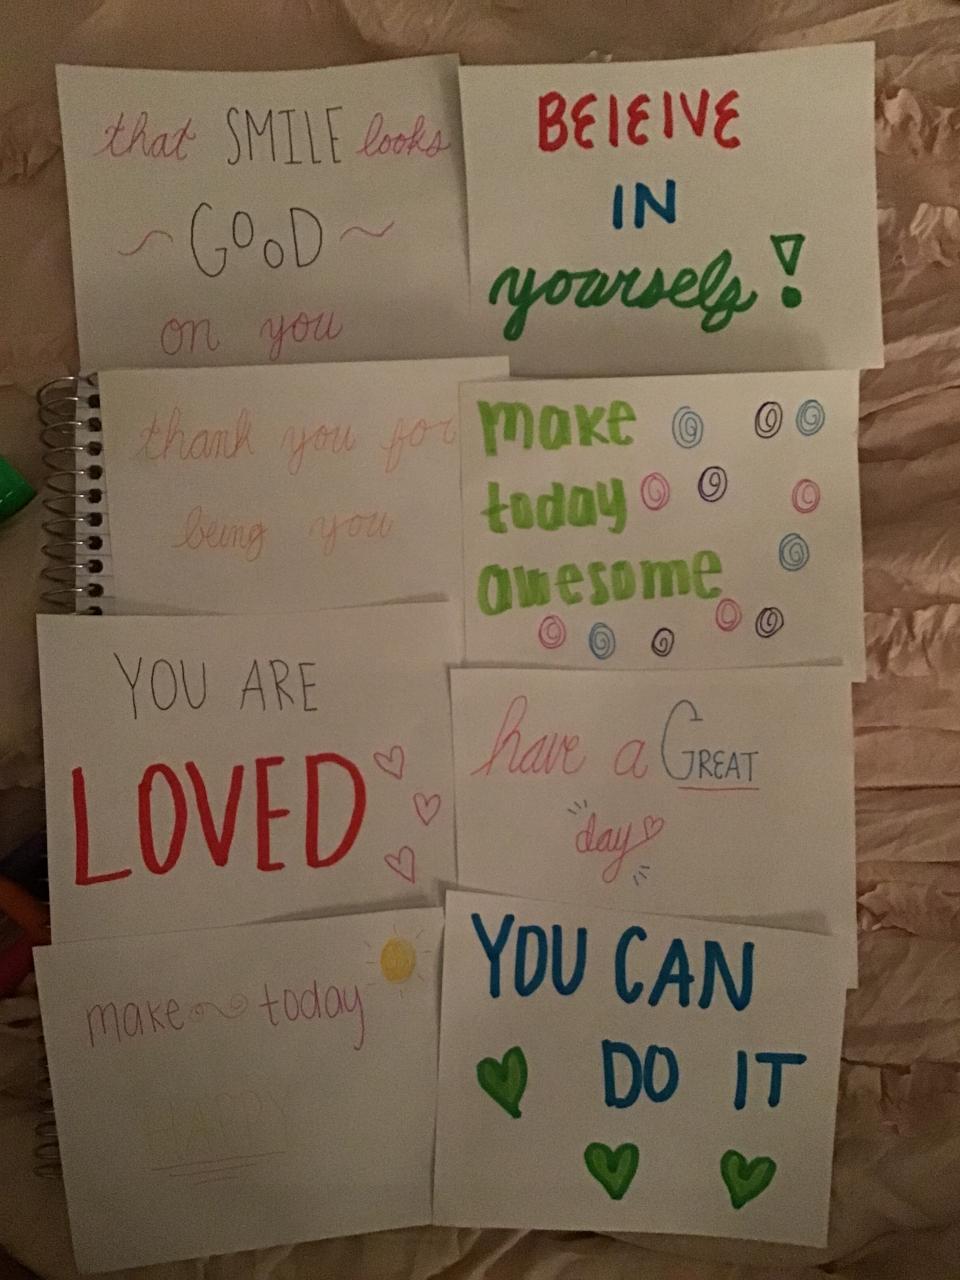 that SMILE looks
~ GOOD ~
on you
BEIEIVE
IN
yourself!
thank you for
being you
make
today
awesome
YOU ARE
LOVED
have a GREAT
day
make today
HAPPY
YOU CAN
DO IT